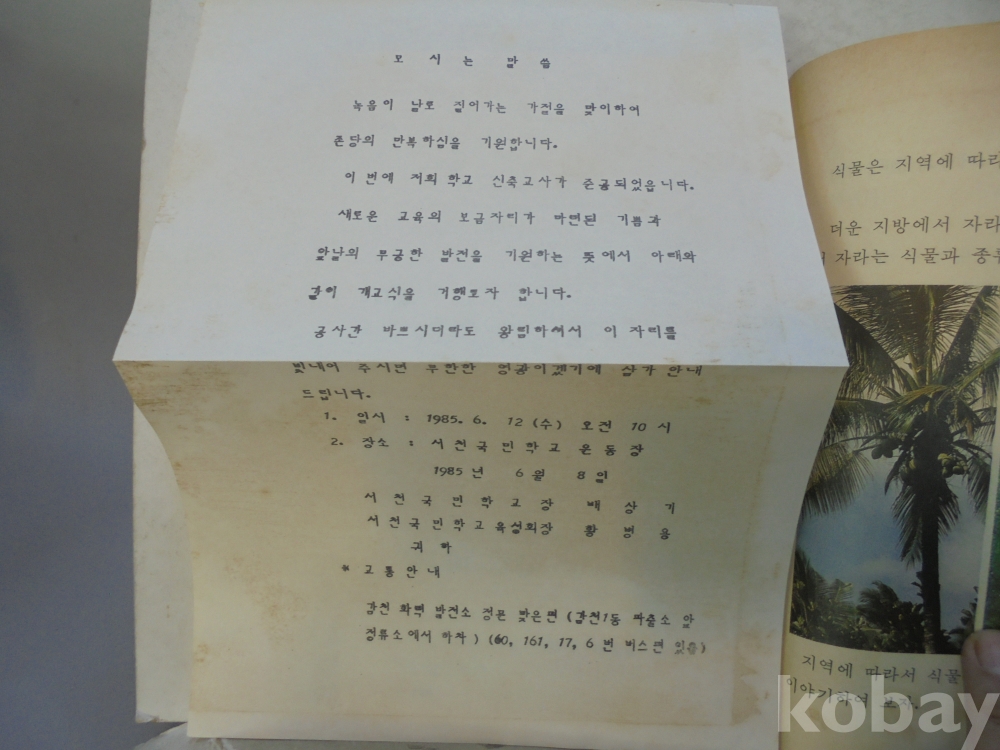 모 시 는 말 씀
녹음이 날로 짙어가는 가절을 맞이하여
존당의 만복하심을 기원합니다.
이 번에 저희 학교 신축교사가 준공되었읍니다.
새로운 교육의 보금자리가 마련된 기쁨과
앞날의 무궁한 발전을 기원하는 뜻에서 아래와
같이 개교식을 거행코자 합니다.
공사간 바쁘시더라도 왕림하셔서 이 자리를
빛내어 주시면 무한한 영광이겠기에 삼가 안내
드립니다.
1. 일시 : 1985. 6. 12 (수) 오전 10 시
2. 장소 : 서천국민학교 운동장
1985 년 6 월 8 일
서 천 국 민 학 교 장 배 상 기
서 천 국 민 학 교 육성회장 황 병 용
귀 하
* 교 통 안 내
감천 화력 발전소 정문 맞은편 (감천1동 파출소 앞
정류소에서 하차 ) (60, 161, 17, 6 번 버스편 있음)
식물은 지역에 따라
더운 지방에서 자라
자라는 식물과 종류
지역에 따라서 식물
이야기하여 보자.
kobay